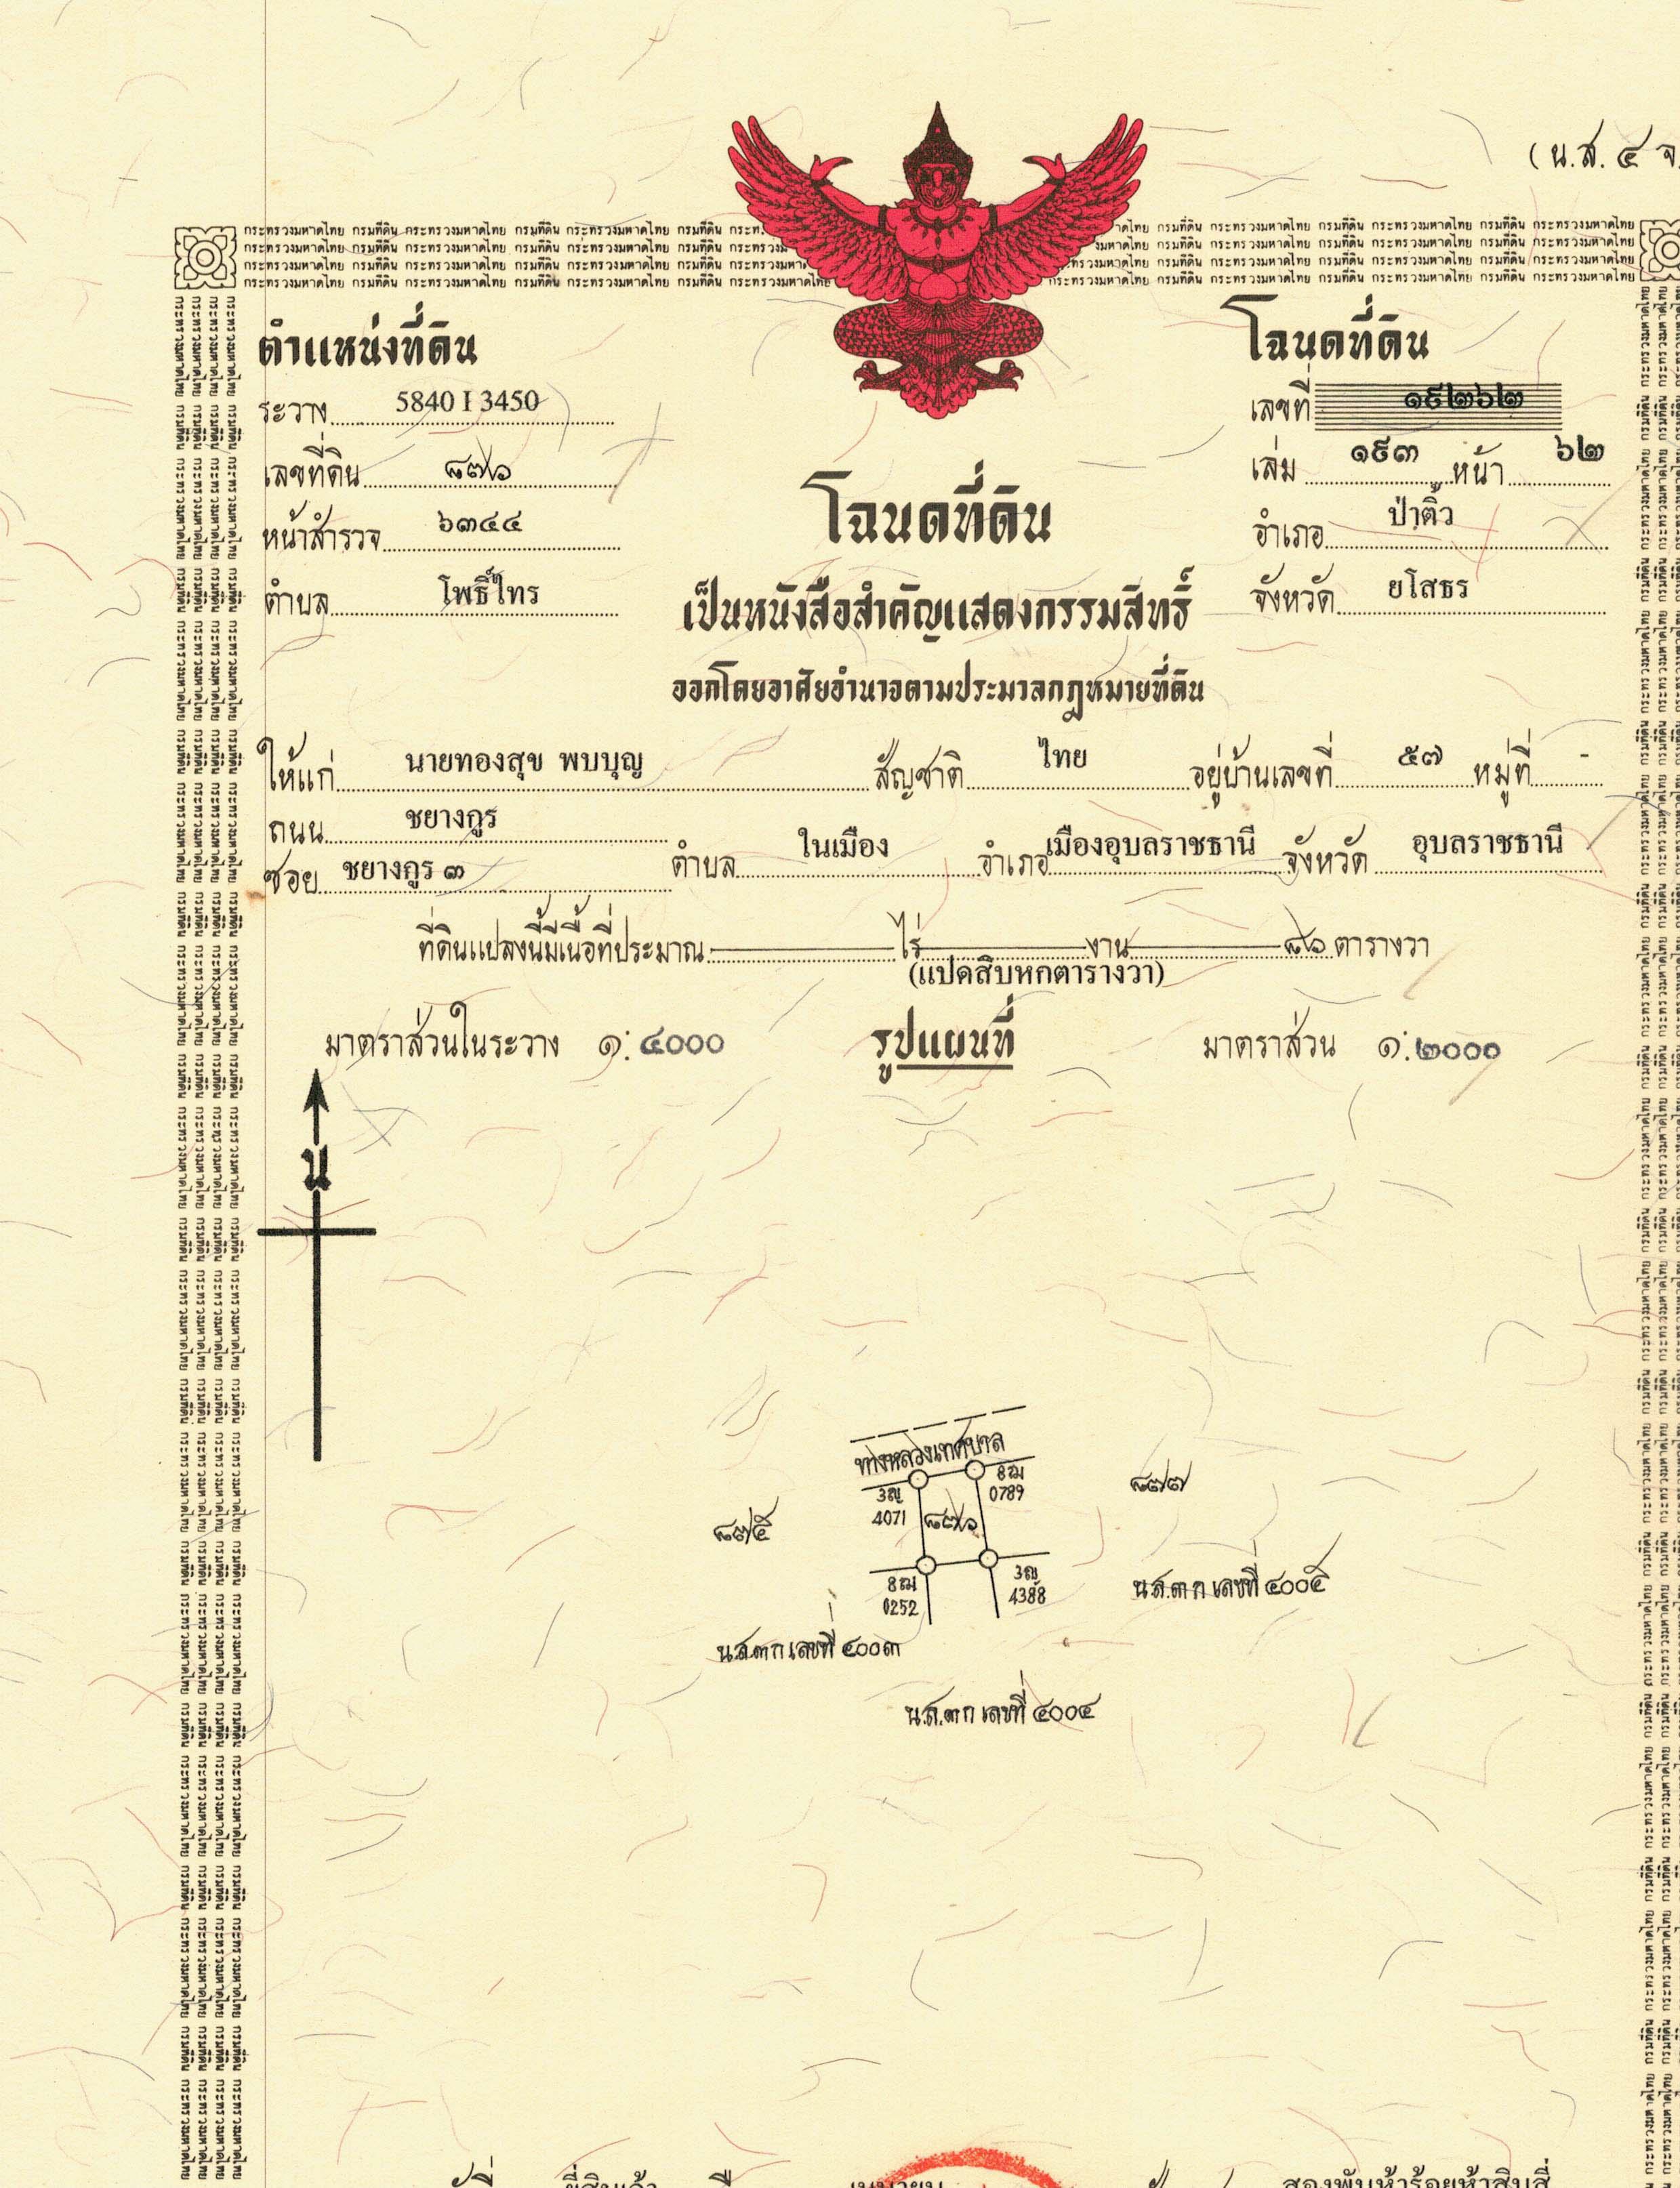 (น.ส. ๔ จ.
กระทรวงมหาดไทย กรมที่ดิน กระทรวงมหาดไทย กรมที่ดิน กระทรวงมหาดไทย กรมที่ดิน
ตำแหน่งที่ดิน
ระวาง 5840 I 3450
เลขที่ดิน ๘๗๖
หน้าสำรวจ ๖๓๔๔
ตำบล โพธิ์ไทร
โฉนดที่ดิน
เลขที่ ๑๙๒๖๒
เล่ม ๑๙๓ หน้า ๖๒
อำเภอ ป่าติ้ว
จังหวัด ยโสธร
โฉนดที่ดิน
เป็นหนังสือสำคัญแสดงกรรมสิทธิ์
ออกโดยอาศัยอำนาจตามประมวลกฎหมายที่ดิน
ให้แก่ นายทองสุข พบบุญ สัญชาติ ไทย อยู่บ้านเลขที่ ๕๗ หมู่ที่ -
ถนน ชยางกูร
ซอย ชยางกูร ๓ ตำบล ในเมือง อำเภอ เมืองอุบลราชธานี จังหวัด อุบลราชธานี
ที่ดินแปลงนี้มีเนื้อที่ประมาณ ไร่ งาน ๘๖ ตารางวา
(แปดสิบหกตารางวา)
มาตราส่วนในระวาง ๑:๔๐๐๐ รูปแผนที่ มาตราส่วน ๑:๒๐๐๐
น
ทางหลวงเทศบาล
3ญ
4071
8ฌ
0789
๘๗๖
๘๗๕
๘๗๗
8ฌ
0252
3ญ
4388
น.ส.๓ ก เลขที่ ๔๐๐๕
น.ส.๓ ก เลขที่ ๔๐๐๓
น.ส.๓ ก เลขที่ ๔๐๐๔
สองพันห้าร้อยห้าสิบสี่